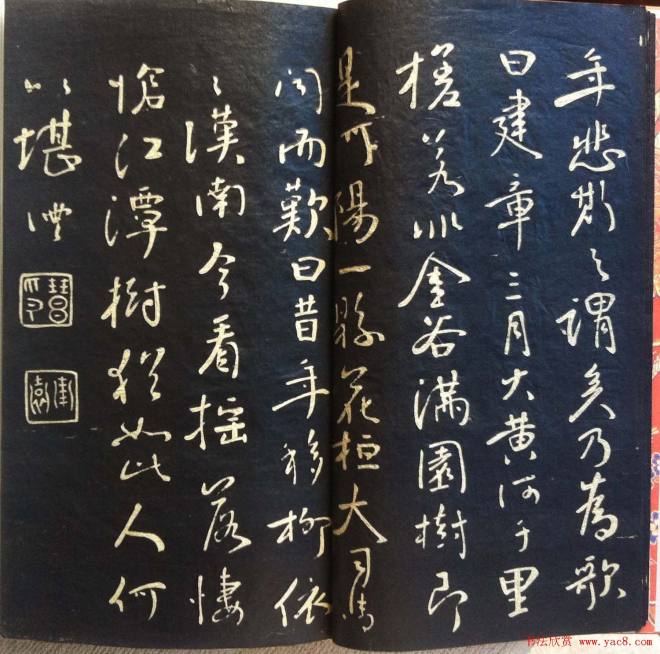 年悲斯之謂矣乃為歌
曰建章三月火黃河千里
槎若非金谷滿園樹即
是河陽一縣花桓大司馬
聞而歎曰昔年移柳依
〻漢南今看搖落悽
愴江潭樹猶如此人何
以堪
书法欣赏 www.yac8.com